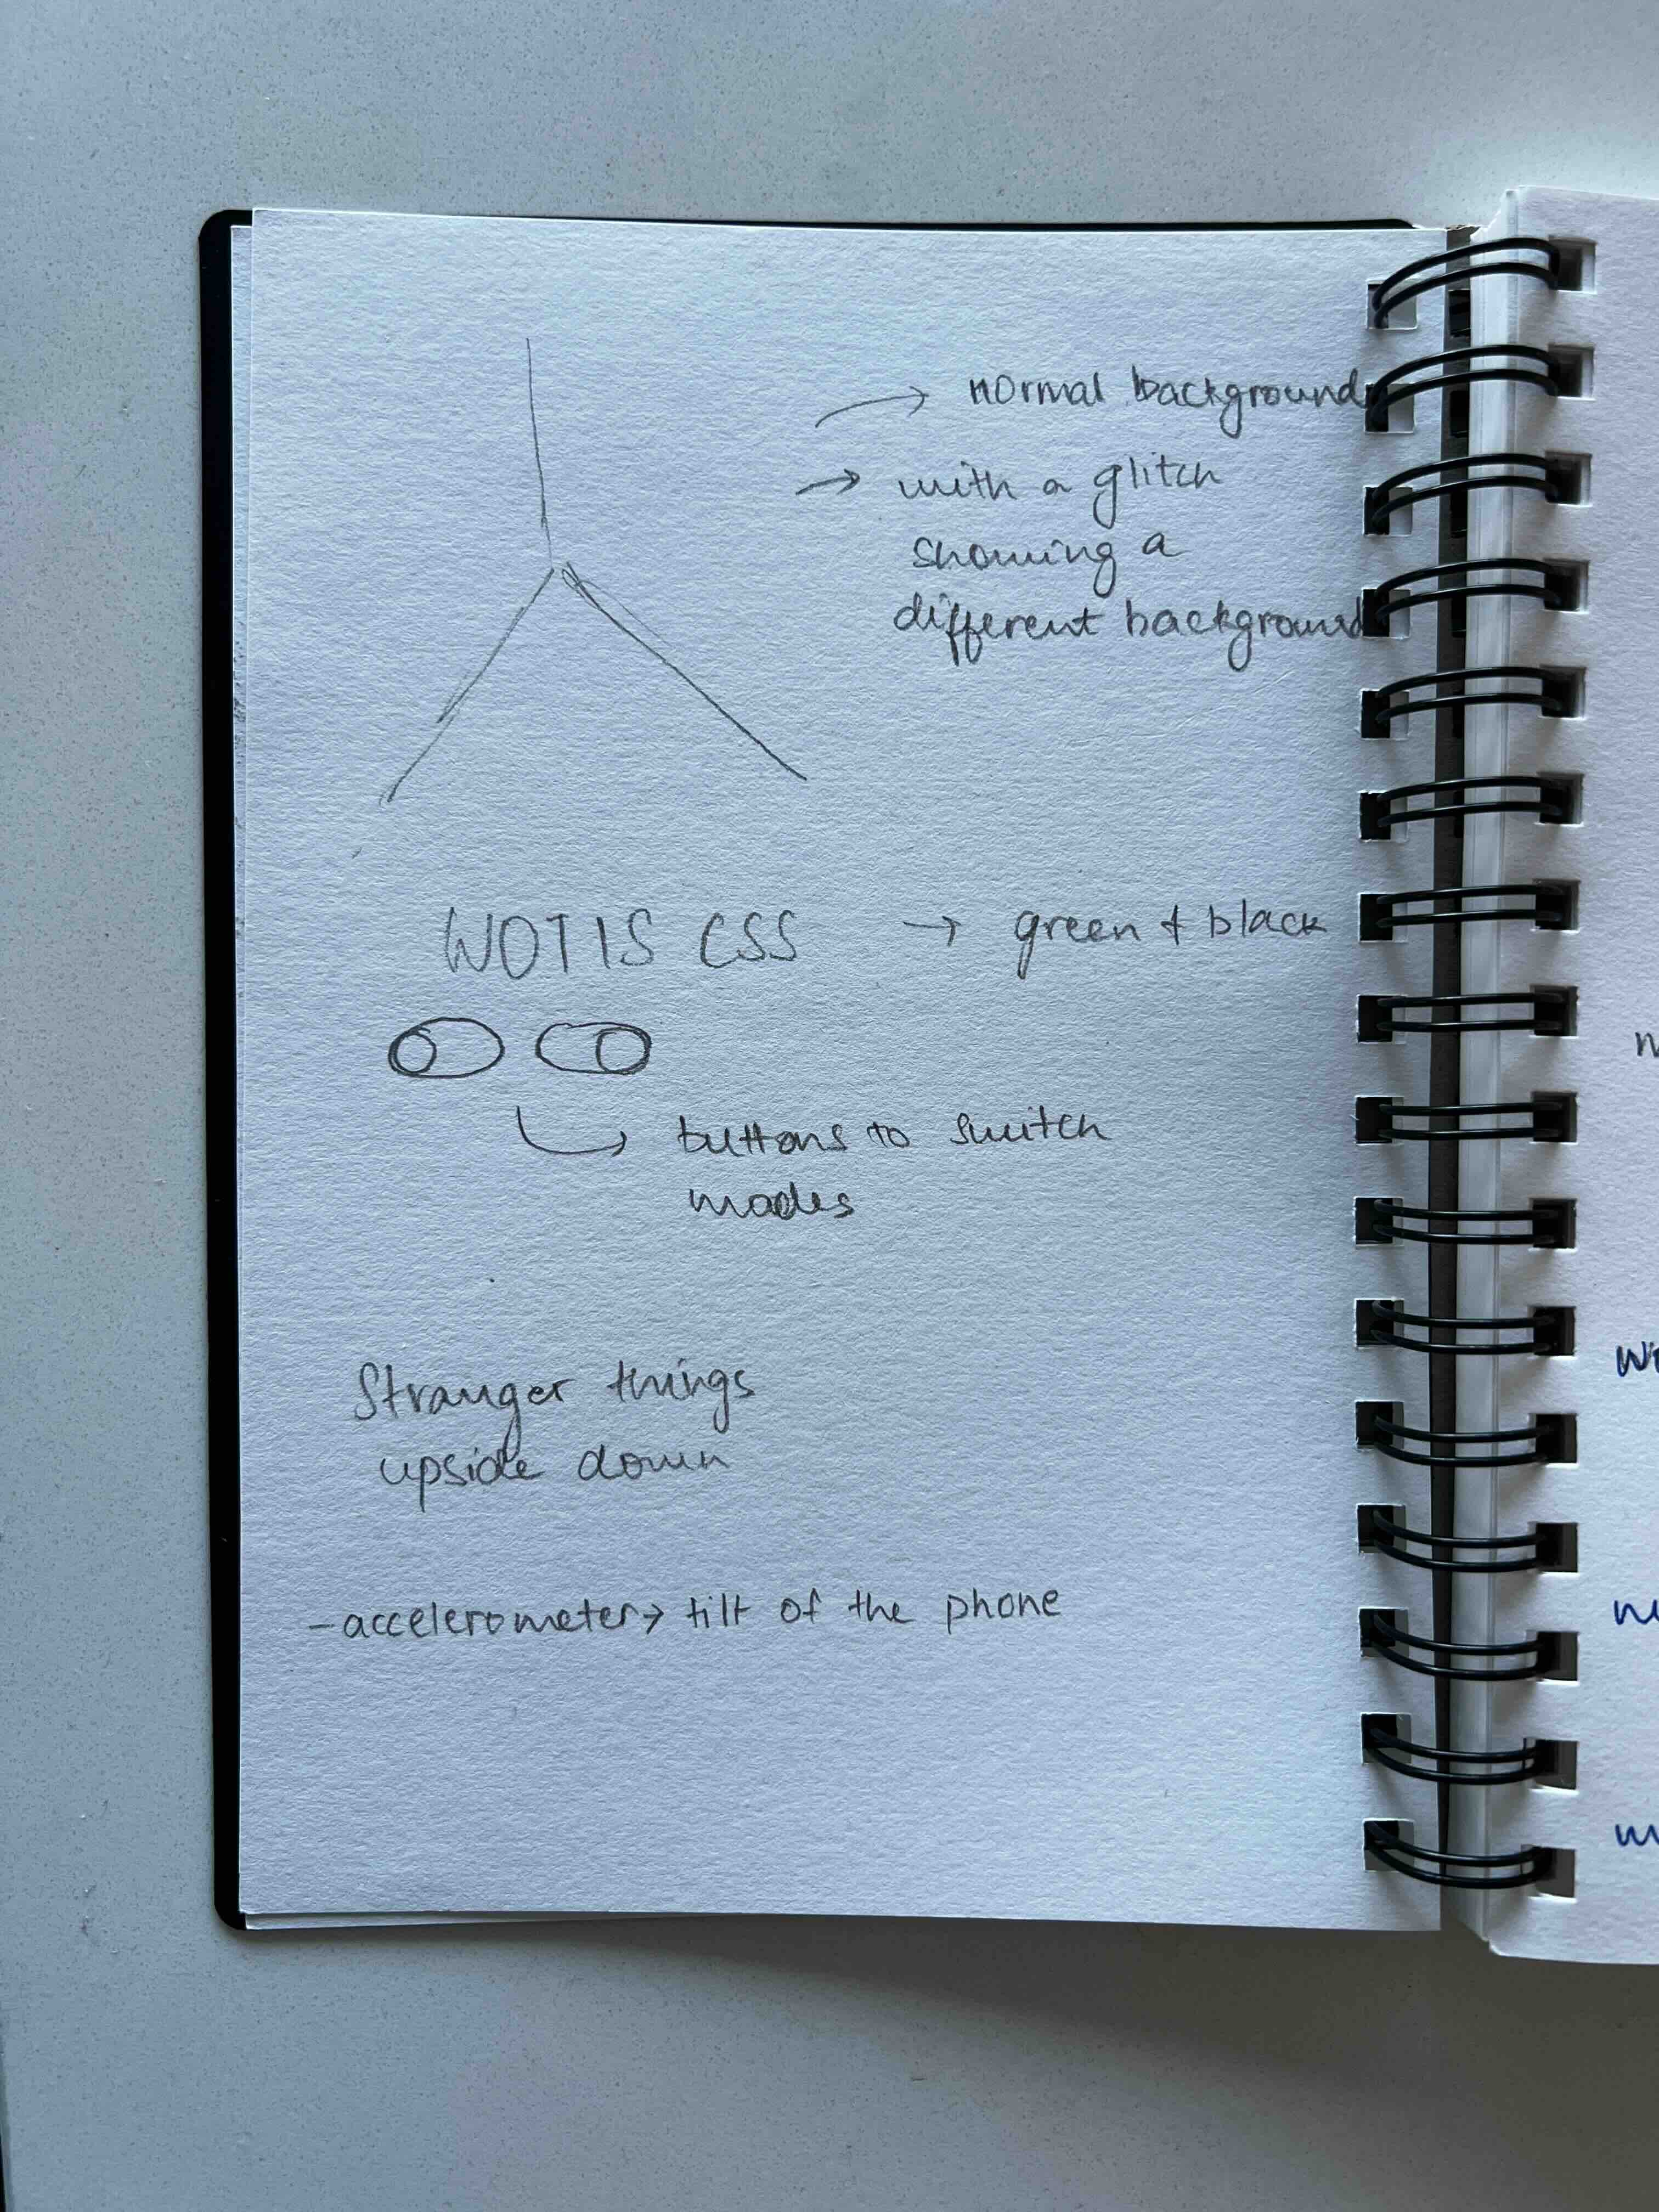 → normal background
→ with a glitch
showing a
different background
WOT IS CSS → green + black
buttons to switch
modes
Stranger things
upside down
- accelerometer → tilt of the phone